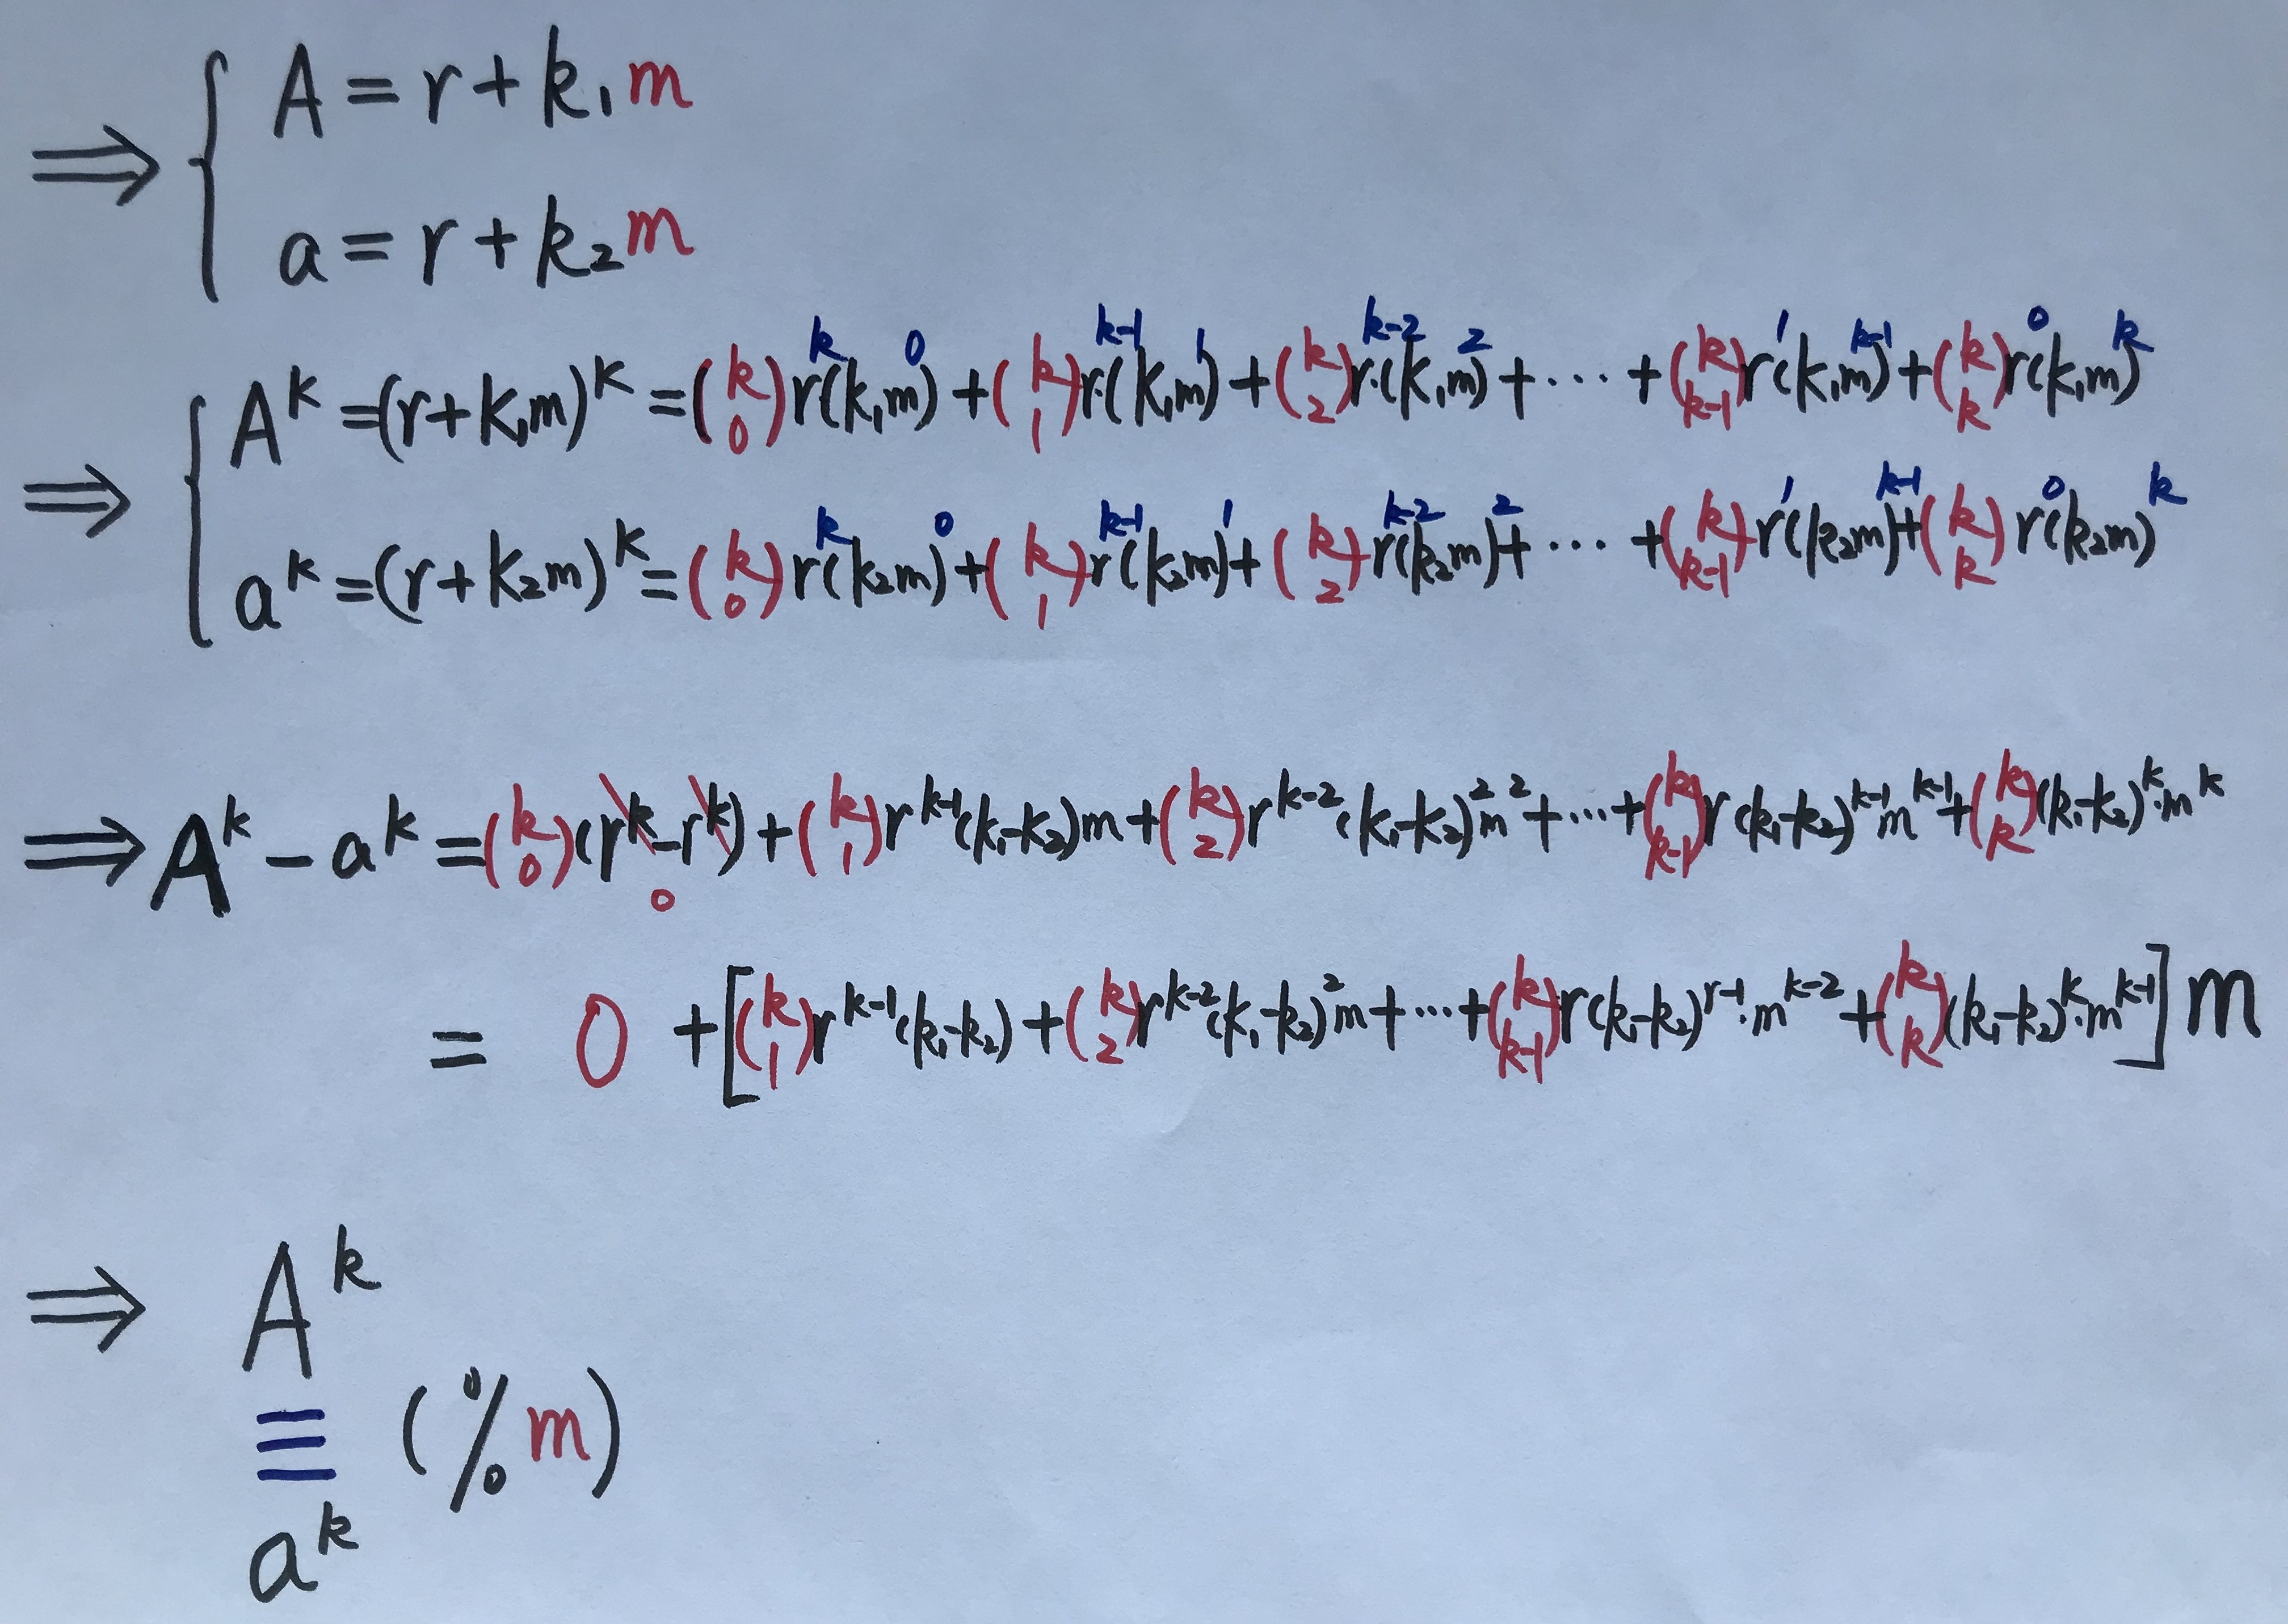 ⇒ { A = r + k₁m
a = r + k₂m
⇒ { Aᵏ = (r + k₁m)ᵏ = (k 0) rᵏ(k₁m)⁰ + (k 1) rᵏ⁻¹·(k₁m)¹ + (k 2) rᵏ⁻²·(k₁m)² + ⋯ + (k k-1) r¹(k₁m)ᵏ⁻¹ + (k k) r⁰(k₁m)ᵏ
aᵏ = (r + k₂m)ᵏ = (k 0) rᵏ(k₂m)⁰ + (k 1) rᵏ⁻¹(k₂m)¹ + (k 2) rᵏ⁻²(k₂m)² + ⋯ + (k k-1) r¹(k₂m)ᵏ⁻¹ + (k k) r⁰(k₂m)ᵏ
⇒ Aᵏ - aᵏ = (k 0)(rᵏ - rᵏ) + (k 1) rᵏ⁻¹(k₁-k₂)m + (k 2) rᵏ⁻²(k₁-k₂)²m² + ⋯ + (k k-1) r(k₁-k₂)ᵏ⁻¹m ᵏ⁻¹ + (k k)(k₁-k₂)ᵏ·mᵏ
0
= 0 + [(k 1) rᵏ⁻¹(k₁-k₂) + (k 2) rᵏ⁻²(k₁-k₂)²m + ⋯ + (k k-1) r(k₁-k₂)ʳ⁻¹·mᵏ⁻² + (k k)(k₁-k₂)ᵏ·mᵏ⁻¹] m
⇒ Aᵏ
≡ (%m)
aᵏ